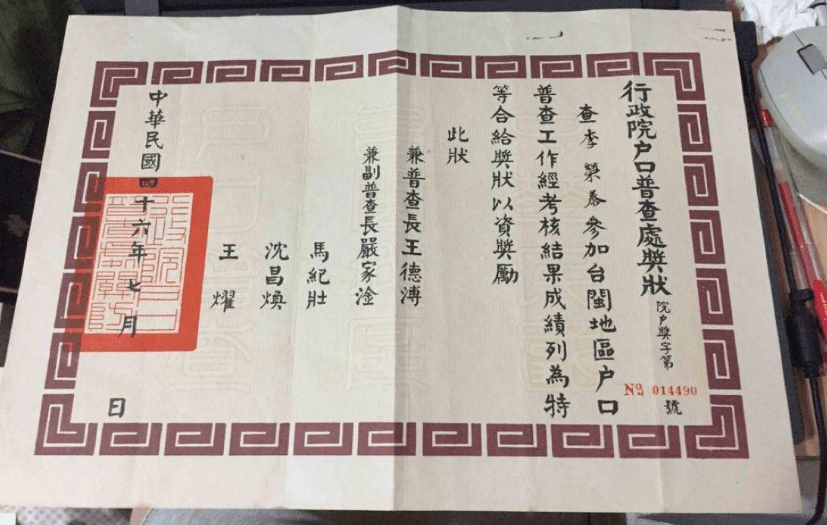 行政院户口普查處獎狀
院户獎字第
No 014490
號
查李榮泰參加台閩地區户口
普查工作經考核結果成績列為特
等合給獎狀以資獎勵
此狀
兼普查長王德溥
兼副普查長嚴家淦
馬紀壯
沈昌煥
王燿
中華民國四十六年七月
日